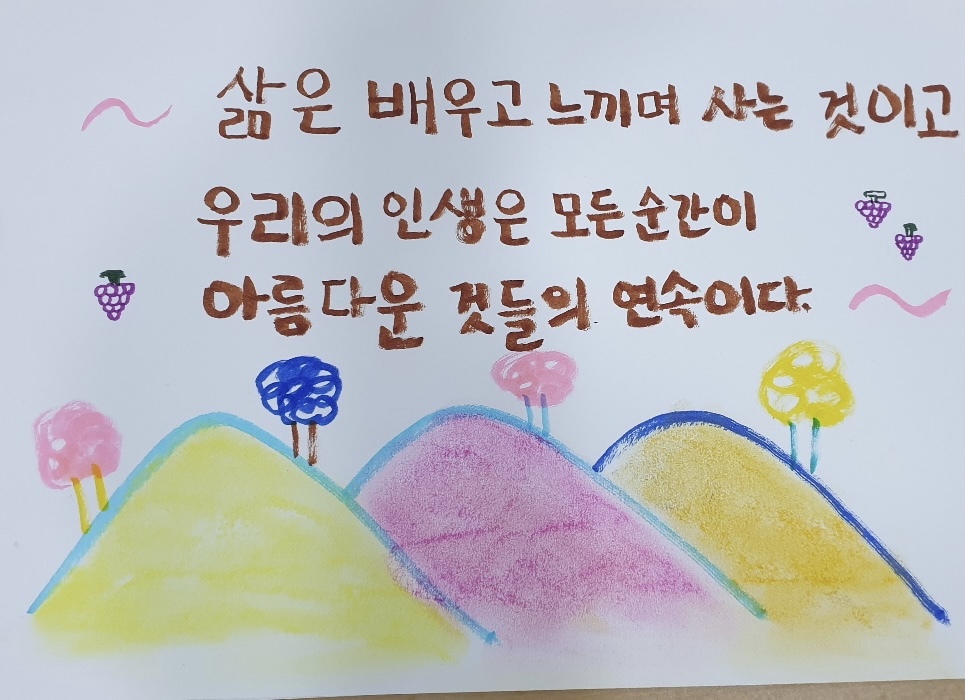 삶은 배우고 느끼며 사는 것이고
우리의 인생은 모든순간이
아름다운 것들의 연속이다.